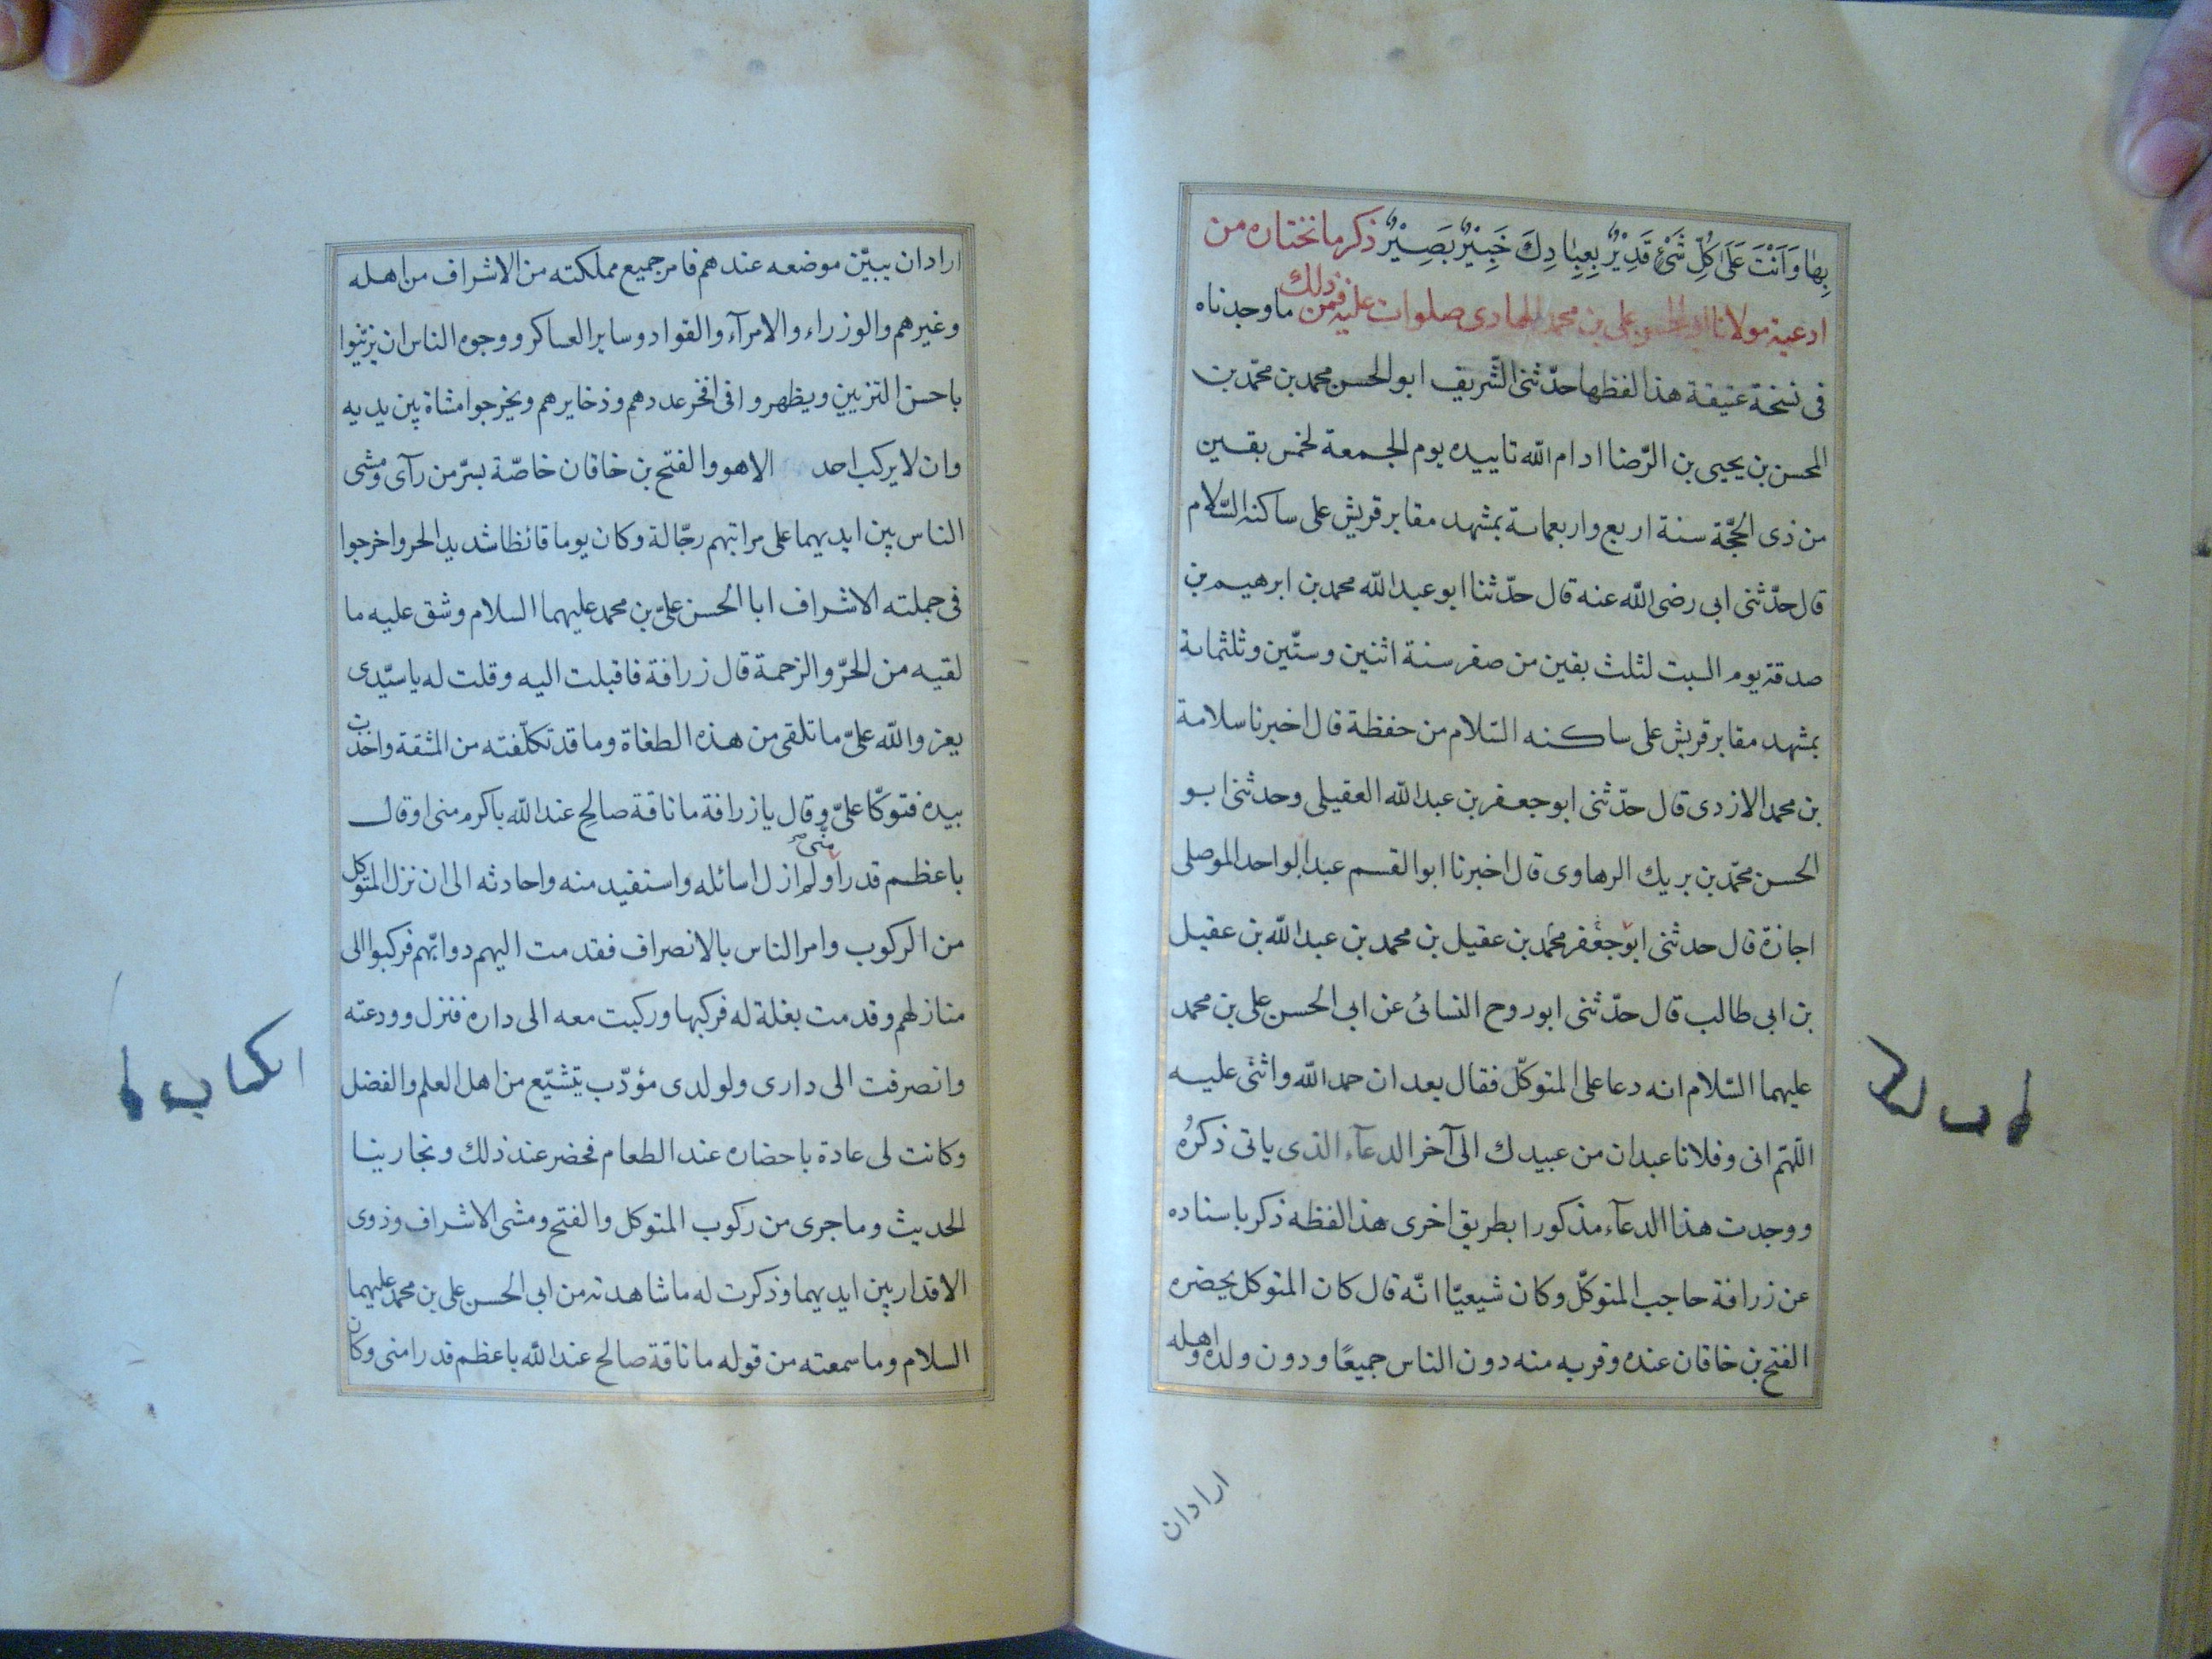 بِهٰا وَاَنْتَ عَلٰى كُلِّ شَیْءٍ قَدِيْرٌ بِعِبٰادِكَ خَبِيْرٌ بَصِيْرٌ ذكر ما نختاره من
ادعية مولانا ابى الحسن على بن محمد الهادى صلوات عليه فمن ذلك ما وجدناه
فى نسخة عتيقة هذا لفظها حدّثنى الشّريف ابو الحسن محمد بن محمّد بن
المحسن بن يحيى بن الرّضا ادام الله تاييده يوم الجمعة لخمس بقين
من ذى الحجّة سنة اربع واربعمائة بمشهد مقابر قريش على ساكنه السّلام
قال حدّثنى ابى رضى اللّه عنه قال حدّثنا ابو عبد اللّه محمد بن ابرهيم بن
صدقة يوم السبت لثلث بقين من صفر سنة اثنين وستّين وثلثمائة
بمشهد مقابر قريش على ساكنه السّلام من حفظة قال اخبرنا سلامة
بن محمد الازدى قال حدّثنى ابو جعفر بن عبد اللّه العقيلى وحدثنى ابو
الحسن محمّد بن بريك الرهاوى قال اخبرنا ابو القسم عبد الواحد الموصلى
اجازة قال حدثنى ابو جعفر محمد بن عقيل بن محمد بن عبد اللّه بن عقيل
بن ابى طالب قال حدّثنى ابو روح النسائى عن ابى الحسن على بن محمد
عليهما السّلام انه دعا على المتوكّل فقال بعد ان حمد اللّه واثنى عليه
اللّهمّ انى وفلانا عبدان من عبيدك الى آخر الدعآء الذى ياتى ذكرُه
ووجدت هذا الدعآء مذكورا بطريق اخرى هذا لفظه ذكر باسناده
عن زرافة حاجب المتوكّل وكان شيعيّا انّه قال كان المتوكل يحضره
الفتح بن خاقان عنده وقربه منه دون الناس جميعًا ودون ولده واهله
ارادان
ارادان يبيّن موضعه عندهم فامر جميع مملكته من الاشراف من اهله
وغيرهم والوزراء والامرآء والقواد وساير العساكر ووجوه الناس ان يزيّنوا
باحسن التزيين ويظهروا فى افخر عددهم وذخايرهم ويخرجوا مشاة بين يديه
وان لا يركب احد الا هو والفتح بن خاقان خاصّة بسرّ من رآى ومشى
الناس بين ايديهما على مراتبهم رجّالة وكان يوما قائظا شديد الحر واخرجوا
فى جملته الاشراف ابا الحسن علىّ بن محمد عليهما السلام وشق عليه ما
لقيه من الحرّ والزحمة قال زرافة فاقبلت اليه وقلت له يا سيّدى
يعز واللّه علىّ ما تلقى من هذه الطغاة وما قد تكلّفته من المشقة واخذت
بيده فتوكّا علىّ وقال يا زرافة ما ناقة صالح عند اللّه باكرم منى او قال
باعظم قدرا منّى ولم ازل اسائله واستفيد منه واحادثه الى ان نزل المتوكل
من الركوب وامر الناس بالانصراف فقدمت اليهم دوابّهم فركبوا الى
منازلهم وقدمت بغلة له فركبها وركبت معه الى داره فنزل وودعته
وانصرفت الى دارى ولولدى مؤدّب يتشيّع من اهل العلم والفضل
وكانت لى عادة باحضاره عند الطعام فحضر عند ذلك وتجارينا
الحديث وما جرى من ركوب المتوكل والفتح ومشى الاشراف وذوى
الاقدار بين ايديهما وذكرت له ما شاهدته من ابى الحسن على بن محمد عليهما
السلام وما سمعته من قوله ما ناقة صالح عند اللّه باعظم قدرا منى وكان